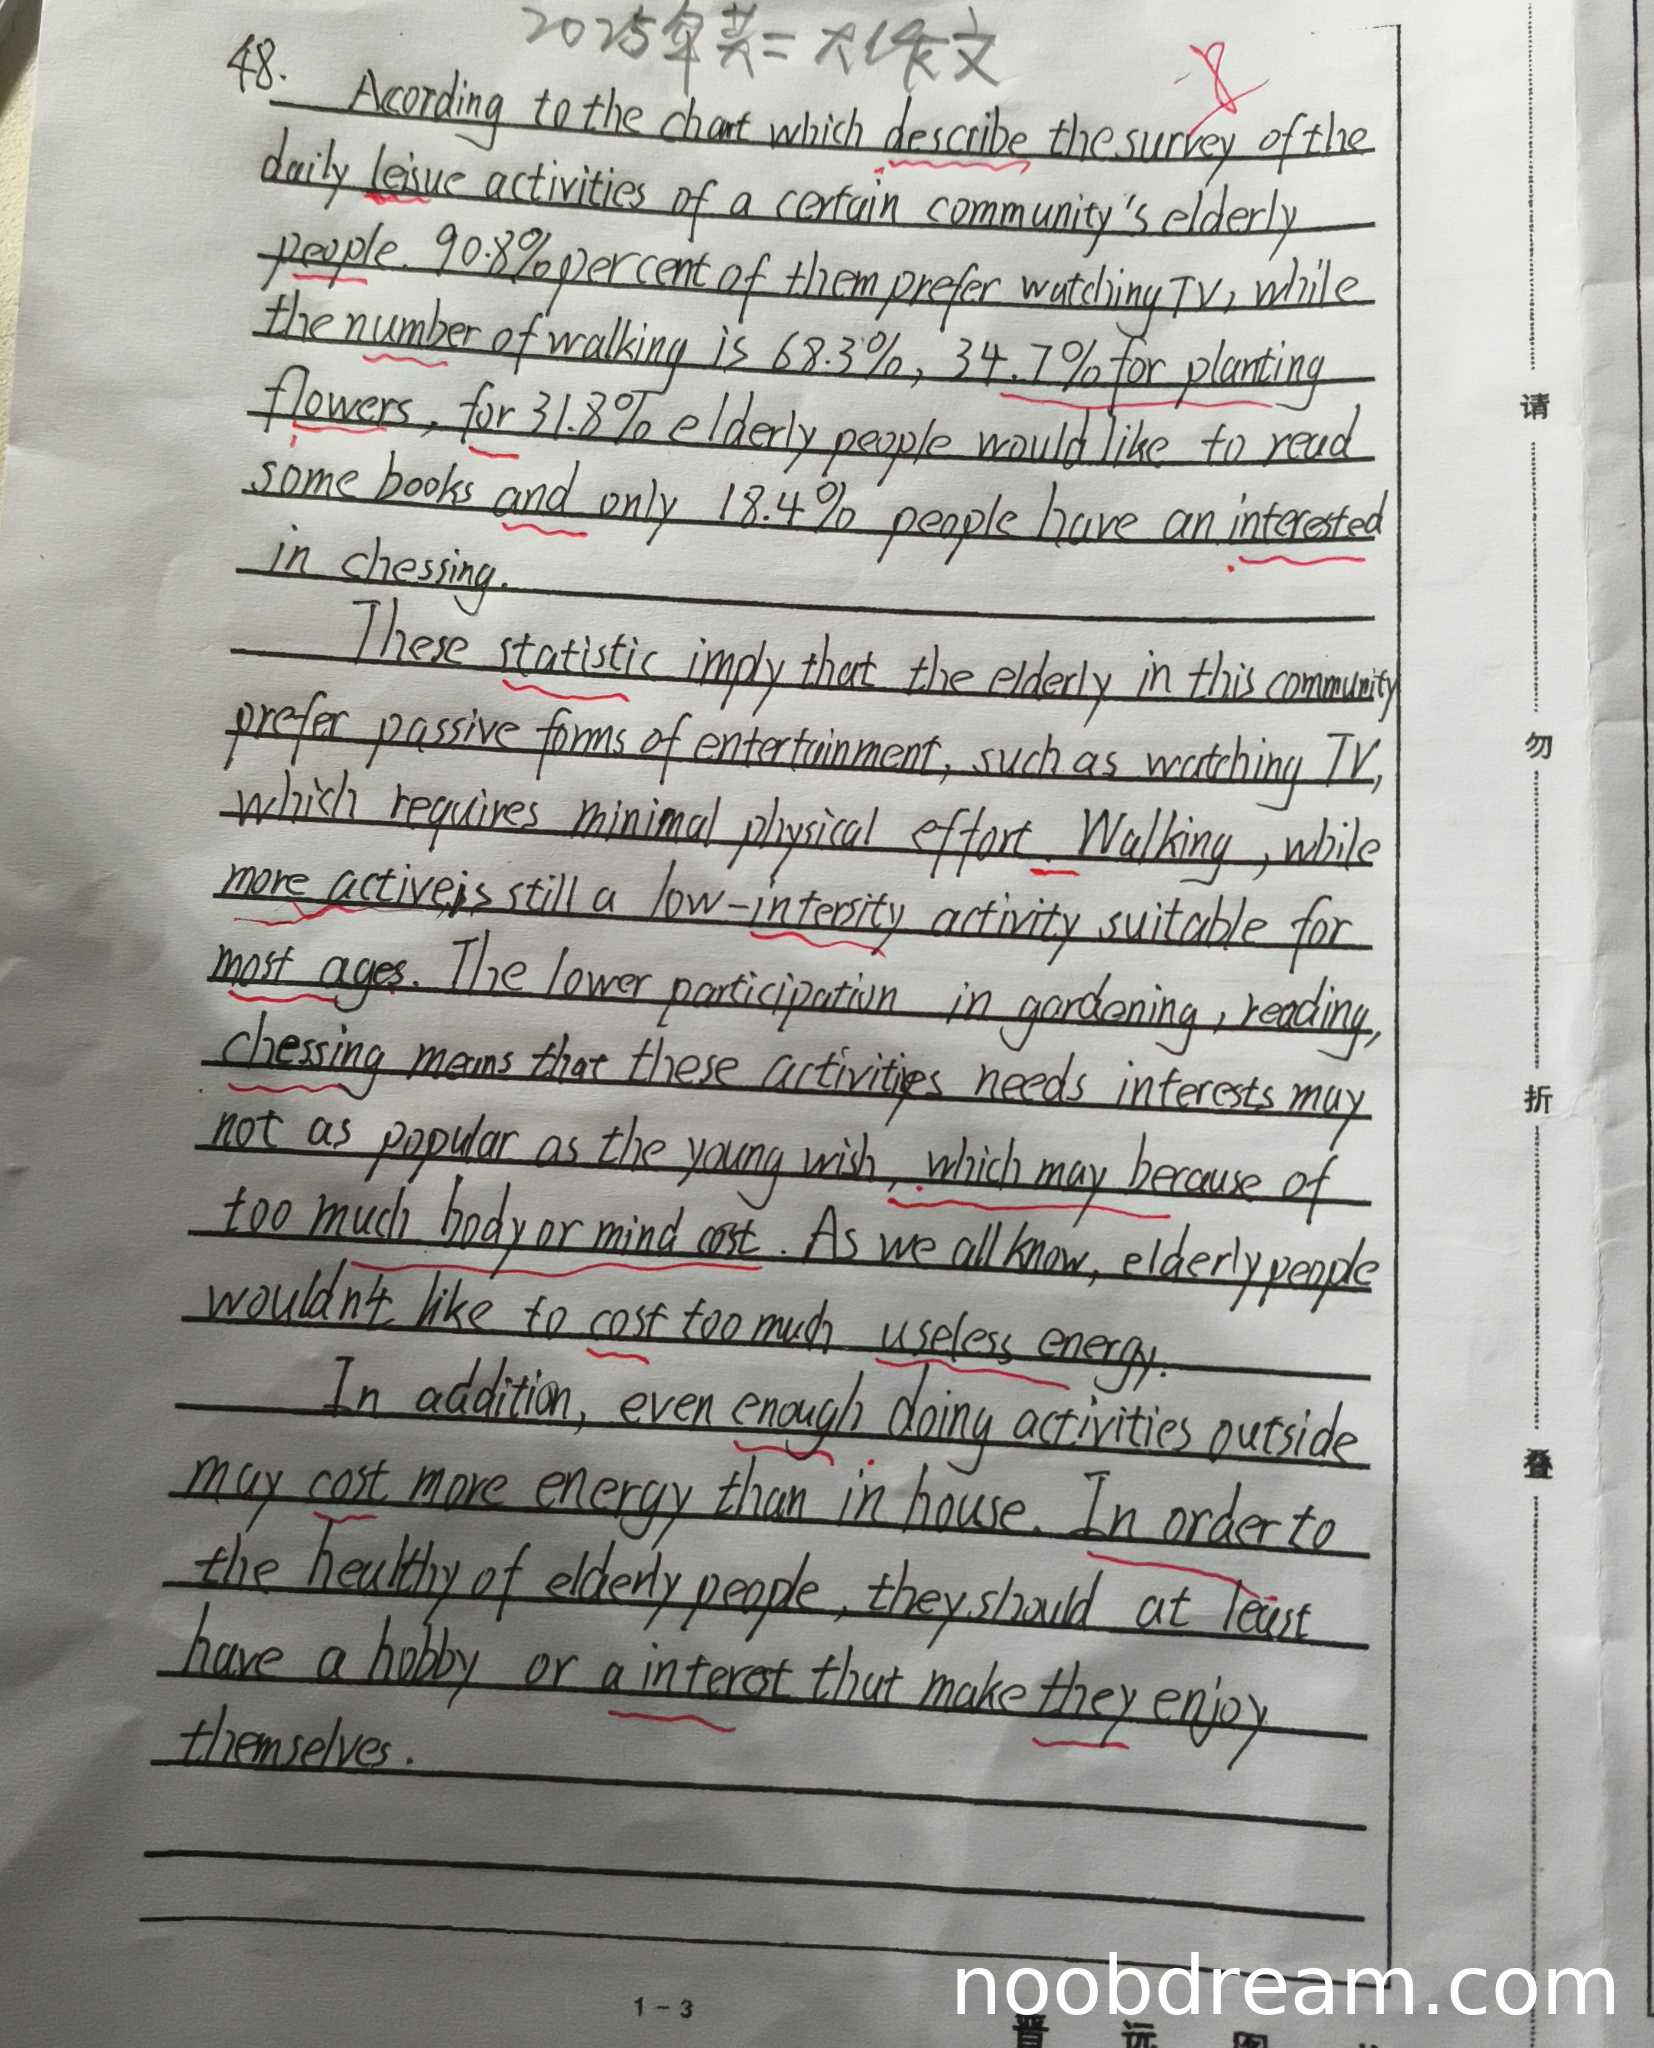 2025年英二大作文
48.
Acording to the chart which describe the survey of the
daily leisue activities of a certain community's elderly
people. 90.8% percent of them prefer watching TV, while
the number of walking is 68.3%, 34.7% for planting
flowers, for 31.8% elderly people would like to read
some books and only 18.4% people have an interested
in chessing.
These statistic imply that the elderly in this community
prefer passive forms of entertainment, such as watching TV,
which requires minimal physical effort. Walking, while
more active, is still a low-intersity activity suitable for
most ages. The lower participation in gardening, reading,
chessing means that these activities needs interests may
not as popular as the young wish, which may because of
too much body or mind cost. As we all know, elderly people
wouldn't like to cost too much useless energy.
In addition, even enough doing activities outside
may cost more energy than in house. In order to
the healthy of elderly people, they should at least
have a hobby or a interest that make they enjoy
themselves.
1-3
请勿折叠
noobdream.com